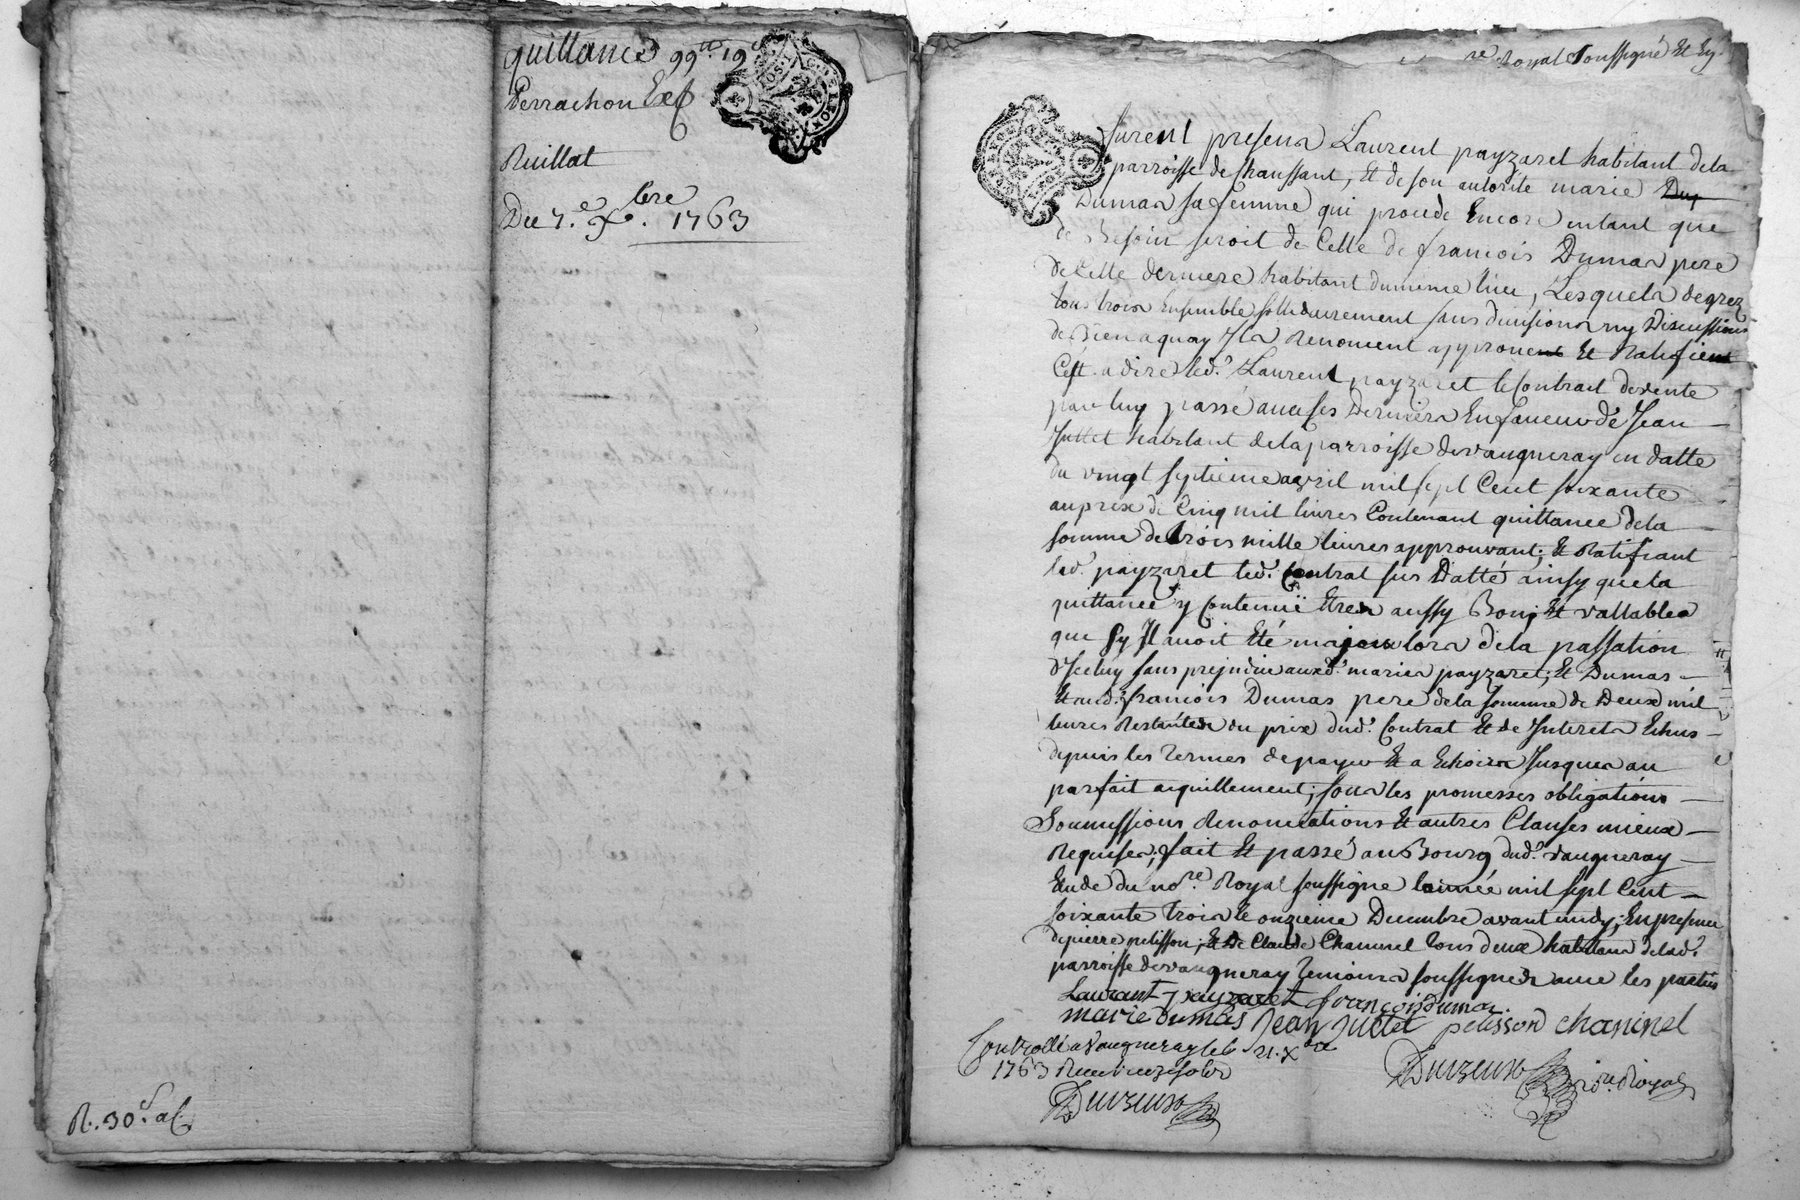 quillance 99tt 19s
Perrachon Exp
Ruillat
Du 7.e xbre. 1763
R. 30s. a
re Royal soussigné Et
furent presens Laurent payzaret habitant dela
parroisse de Chaussant, Et de son autorité marie
Dumas sa femme qui procede Encore entant que
de Besoin seroit de Celle de francois Dumas pere
de Cette derniere habitant dumême lieu, Lesquels degrez
tous trois Ensemble sollidairement sans divisions ny Discussions
de Biens aquoy Ils Renoncent approuvent Et Ratifient
C'est adire led.t Laurent payzaret le Contrait devente
par luy passé avec ses Derniers En faveur de Jean
Juttet habitant de la parroisse devaugneray en datte
du vingt septieme avril mil sept Cent soixante
auprix de Cinq mil livres Contenant quittance dela
somme de trois mille livres approuvant, Et Ratifiant
led.t payzaret led.t Contrat sus Datté ainsy que la
quittance y Contenuë Etres aussy Bons, Et vallables
que sy Il avoit Eté majeur lors de la passation
d'Iceluy sans prejudice auxd.t mariés payzaret, Et Dumas
Et aud.t francois Dumas pere dela somme de Deux mil
livres Restantes du prix dud.t Contrat Et de Interets Echus
depuis les termes de payer Et a Echoirs Jusques au
parfait aquillement; sous les promesses obligations
Soumissions Renonciations Et autres Clauses mieux
Requises, fait Et passé au Bourg dud.t vaugneray
Etude du no.re Royal soussigné lannée mil sept Cent
soixante trois le onzieme Decembre avant midy; En presence
de pierre pelisson, Et De Claude Chaninel tous deux habitans delad.t
parroisse devaugneray temoins soussignés avec les parties
Laurant payzaret françois Dumas.
marie dumas Jean Juttet pelisson chaninel
Controllé a Vaugneray le 21. xbre
1763 Recu treize sols
Duvzeuso
Duvzeuso no.re Royal